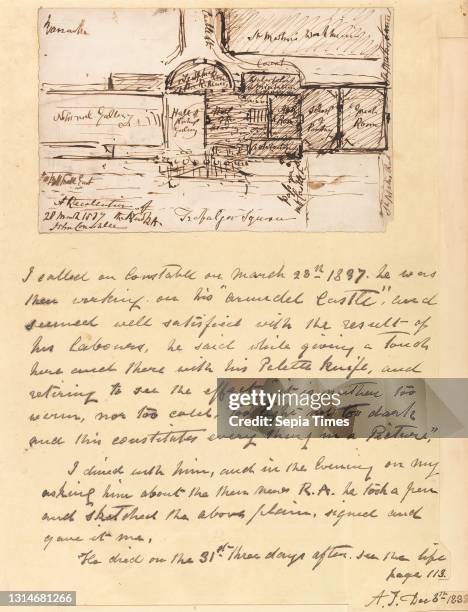 Barracks
St Martins Workhouse
Court
National Gallery
Hall
Gallery
School of Painting
Great Room
A Recollection of the New R.A.
28 March 1837
John Constable
Trafalgar Square
I called on Constable on March 28th 1837. he was
then working on his "Arundel Castle", and
seemed well satisfied with the result of
his labours, he said while giving a touch
here and there with his Palette Knife, and
retiring to see the effect, it is neither too
warm, nor too cold, too dark
and this constitutes every thing in a Picture,"
I dined with him, and in the Evening on my
asking him about the then new R.A. he took a pen
and sketched the above plan, signed and
gave it me,
He died on the 31st three days after. see the life
page 113.
A.T. Dec 8th
gettyimages
Credit: Sepia Times
1314681266